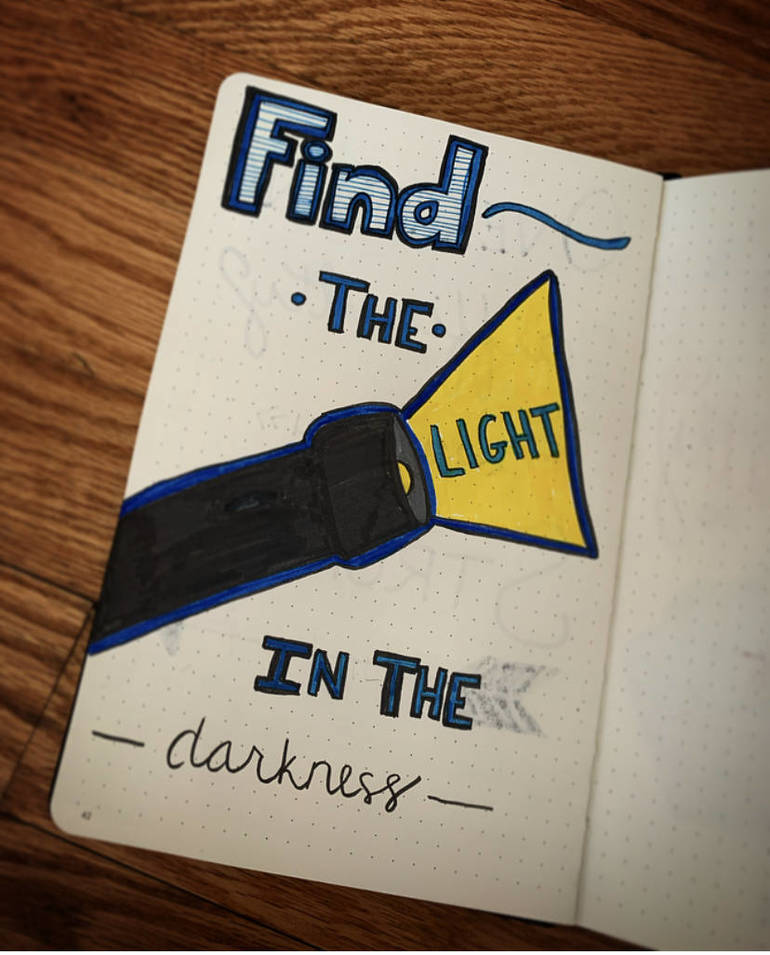 Find
• THE •
LIGHT
IN THE
— darkness —